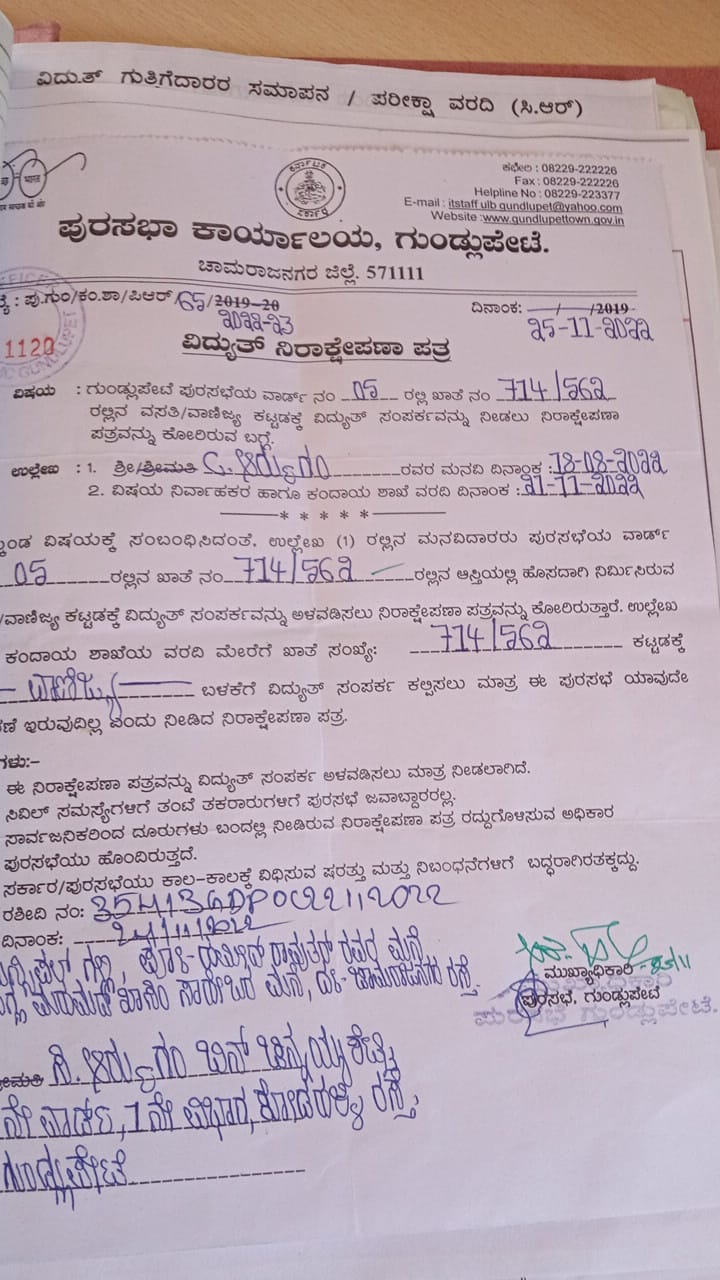 ವಿದ್ಯುತ್ ಗುತ್ತಿಗೆದಾರರ ಸಮಾಪನ / ಪರೀಕ್ಷಾ ವರದಿ (ಸಿ.ಆರ್)
ಕಛೇರಿ : 08229-222226
Fax : 08229-222226
Helpline No : 08229-223377
E-mail : itstaff ulb gundlupet@yahoo.com
Website :www.gundlupettown.gov.in
ಪುರಸಭಾ ಕಾರ್ಯಾಲಯ, ಗುಂಡ್ಲುಪೇಟೆ.
ಚಾಮರಾಜನಗರ ಜಿಲ್ಲೆ. 571111
: ಪು.ಗುಂ/ಕಂ.ಶಾ/ಪಿಆರ್/65/2019-20
2022-23
ದಿನಾಂಕ: __/__/2019
25-11-2022
1120
ವಿದ್ಯುತ್ ನಿರಾಕ್ಷೇಪಣಾ ಪತ್ರ
ವಿಷಯ : ಗುಂಡ್ಲುಪೇಟೆ ಪುರಸಭೆಯ ವಾರ್ಡ್ ನಂ 05 ರಲ್ಲಿ ಖಾತೆ ನಂ 714/562
ರಲ್ಲಿನ ವಸತಿ/ವಾಣಿಜ್ಯ ಕಟ್ಟಡಕ್ಕೆ ವಿದ್ಯುತ್ ಸಂಪರ್ಕವನ್ನು ನೀಡಲು ನಿರಾಕ್ಷೇಪಣಾ
ಪತ್ರವನ್ನು ಕೋರಿರುವ ಬಗ್ಗೆ.
ಉಲ್ಲೇಖ : 1. ಶ್ರೀ/ಶ್ರೀಮತಿ ರವರ ಮನವಿ ದಿನಾಂಕ :18-08-2022
2. ವಿಷಯ ನಿರ್ವಾಹಕರ ಹಾಗೂ ಕಂದಾಯ ಶಾಖೆ ವರದಿ ದಿನಾಂಕ :21-11-2022
* * * * *
ವಿಷಯಕ್ಕೆ ಸಂಬಂಧಿಸಿದಂತೆ, ಉಲ್ಲೇಖ (1) ರಲ್ಲಿನ ಮನವಿದಾರರು ಪುರಸಭೆಯ ವಾರ್ಡ್
05 ರಲ್ಲಿನ ಖಾತೆ ನಂ 714/562 ರಲ್ಲಿನ ಆಸ್ತಿಯಲ್ಲಿ ಹೊಸದಾಗಿ ನಿರ್ಮಿಸಿರುವ
/ವಾಣಿಜ್ಯ ಕಟ್ಟಡಕ್ಕೆ ವಿದ್ಯುತ್ ಸಂಪರ್ಕವನ್ನು ಅಳವಡಿಸಲು ನಿರಾಕ್ಷೇಪಣಾ ಪತ್ರವನ್ನು ಕೋರಿರುತ್ತಾರೆ. ಉಲ್ಲೇಖ
ಕಂದಾಯ ಶಾಖೆಯ ವರದಿ ಮೇರೆಗೆ ಖಾತೆ ಸಂಖ್ಯೆ: 714/562 ಕಟ್ಟಡಕ್ಕೆ
ವಾಣಿಜ್ಯ ಬಳಕೆಗೆ ವಿದ್ಯುತ್ ಸಂಪರ್ಕ ಕಲ್ಪಿಸಲು ಮಾತ್ರ ಈ ಪುರಸಭೆ ಯಾವುದೇ
ಇರುವುದಿಲ್ಲ ಎಂದು ನೀಡಿದ ನಿರಾಕ್ಷೇಪಣಾ ಪತ್ರ.
ಈ ನಿರಾಕ್ಷೇಪಣಾ ಪತ್ರವನ್ನು ವಿದ್ಯುತ್ ಸಂಪರ್ಕ ಅಳವಡಿಸಲು ಮಾತ್ರ ನೀಡಲಾಗಿದೆ.
ಸಿವಿಲ್ ಸಮಸ್ಯೆಗಳಿಗೆ ತಂಟೆ ತಕರಾರುಗಳಿಗೆ ಪುರಸಭೆ ಜವಾಬ್ದಾರರಲ್ಲ.
ಸಾರ್ವಜನಿಕರಿಂದ ದೂರುಗಳು ಬಂದಲ್ಲಿ ನೀಡಿರುವ ನಿರಾಕ್ಷೇಪಣಾ ಪತ್ರ ರದ್ದುಗೊಳಿಸುವ ಅಧಿಕಾರ
ಪುರಸಭೆಯು ಹೊಂದಿರುತ್ತದೆ.
ಸರ್ಕಾರ/ಪುರಸಭೆಯು ಕಾಲ-ಕಾಲಕ್ಕೆ ವಿಧಿಸುವ ಷರತ್ತು ಮತ್ತು ನಿಬಂಧನೆಗಳಿಗೆ ಬದ್ಧರಾಗಿರತಕ್ಕದ್ದು.
ರಶೀದಿ ನಂ:
ದಿನಾಂಕ: 24/11/2022
ಮುಖ್ಯಾಧಿಕಾರಿ
ಪುರಸಭೆ, ಗುಂಡ್ಲುಪೇಟೆ
ಪುರಸಭೆ ಗುಂಡ್ಲುಪೇಟೆ.
ನೇ ವಾರ್ಡ್, 1ನೇ ವಿಭಾಗ, ರಸ್ತೆ,
ಗುಂಡ್ಲುಪೇಟೆ